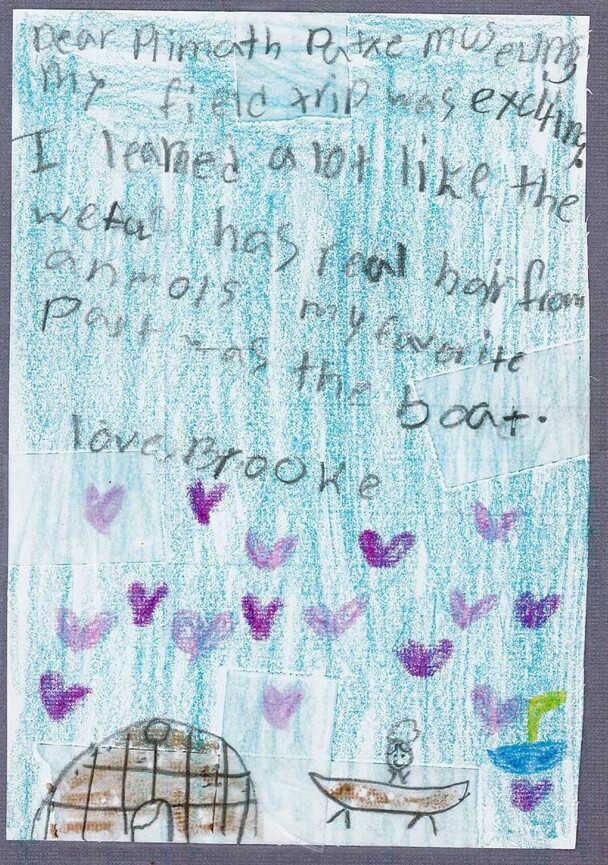 Dear Plimoth Patxe museums
my field trip was exciting.
I learned a lot like the
wetu has real hair from
anmols my favorite
Part was the boat.
love, Brooke